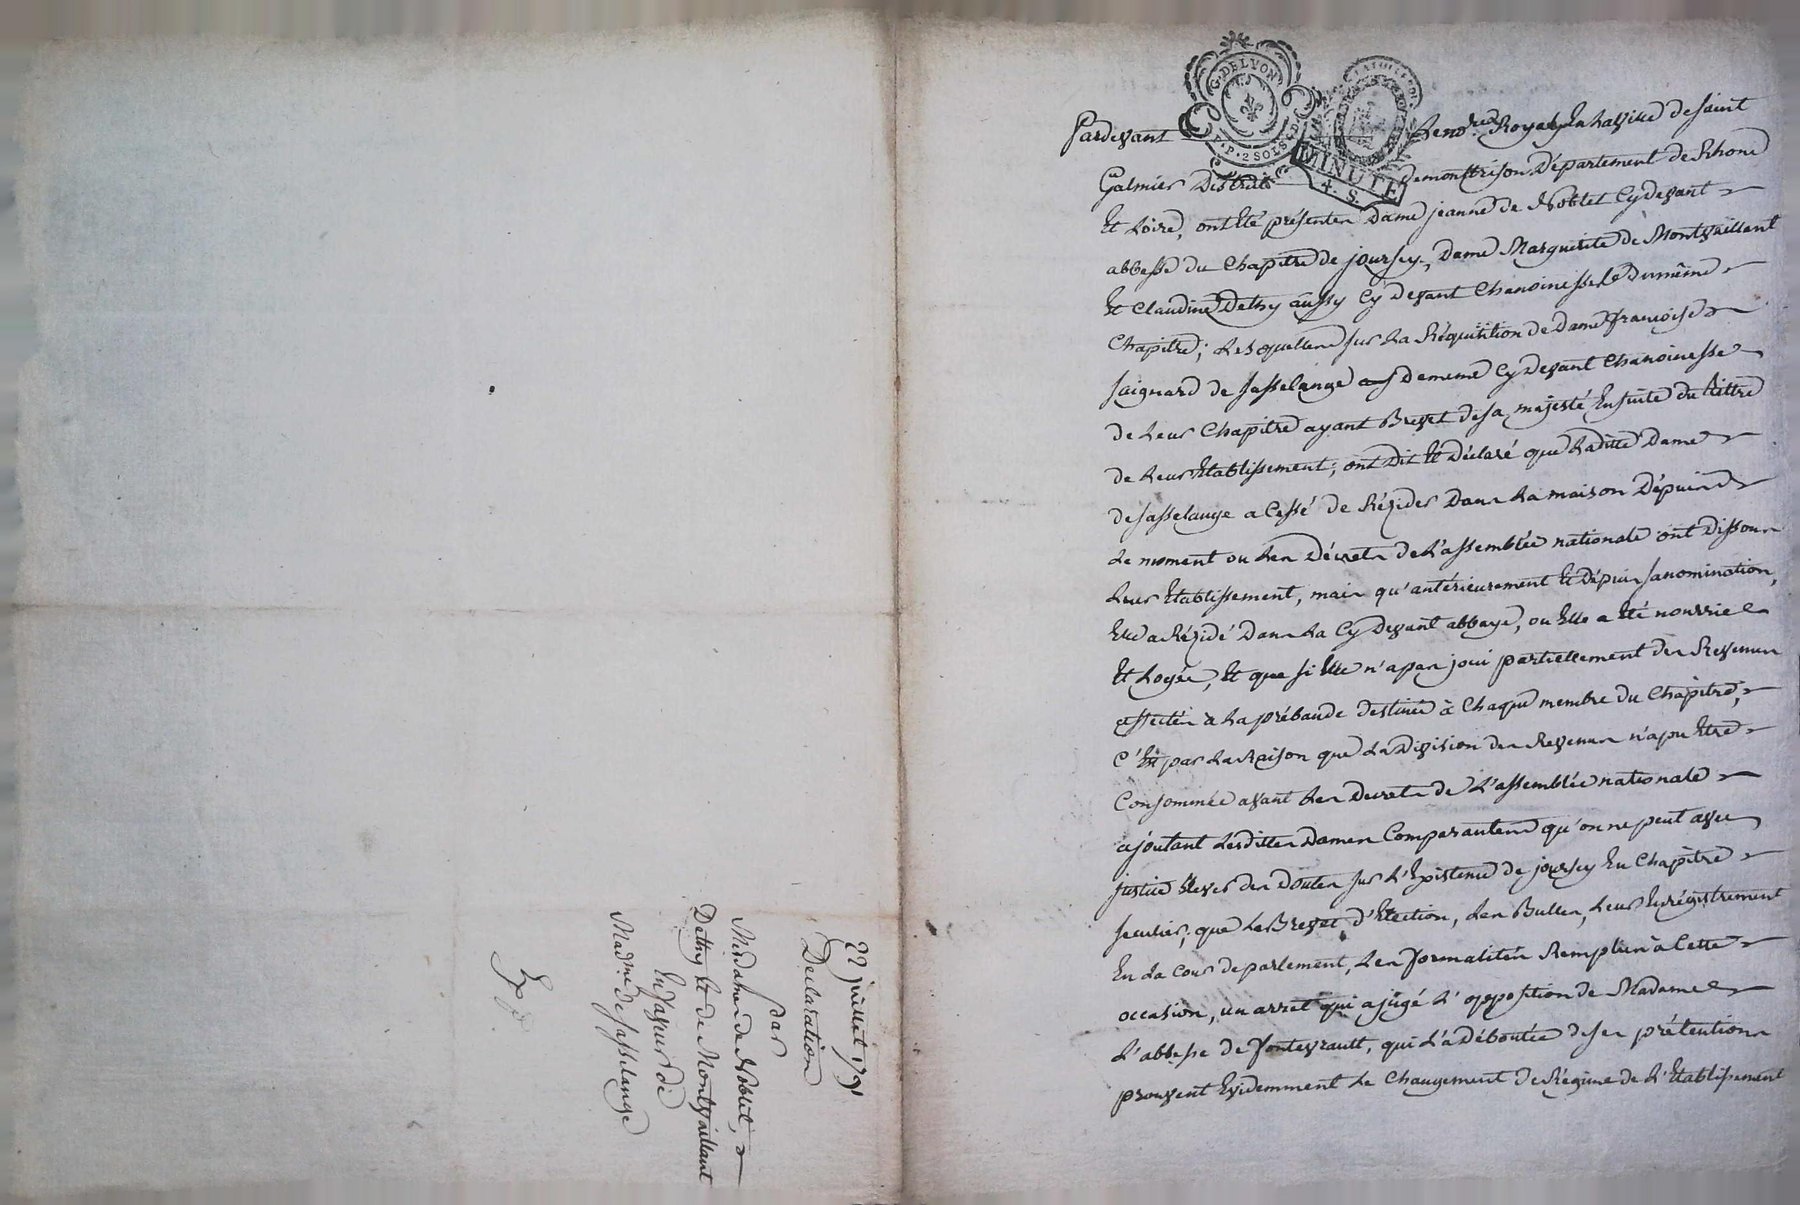 22 juillet 1791
Declaration
par
Mesdames de Noblet,
Dethy Et de Montvaillant
En faveur de
Mad.me de Jasselange
Exp.on
G. DE LYON
P. P. 2 SOLS 6 D
MINUTE
4. S.
Pardevant Les no.res Royaux En la ville de saint
Galmier District de montbrison Département de Rhone
Et Loire, ont Eté présentes Dame jeanne de Noblet Cydevant
abbesse du Chapitre de joursey, Dame Marguerite de Montvaillant
Et Claudine Dethy aussy Cy Devant Chanoinesse Du même
Chapitre; Lesquelles sur La Réquisition de Dame françoise
saignard de sasselange aussy Demême Cy Devant Chanoinesse
de Leur Chapitre ayant Brevet de sa majesté Ensuite du tittre
de Leur Etablissement; ont Dit Et Déclaré que Laditte Dame
de sasselange a Cessé de Résider Dans La maison Dépuis
Le moment ou Les Décrets de L'assemblée nationale ont Dissous
Leur Etablissement, mais qu'antérieurement Et Dépuis sa nomination,
Elle a Résidé Dans La Cy Devant abbaye, ou Elle a Eté nourrie
Et Logée, Et que si Elle n'a pas joui partiellement des Revenus
affectés a La prébande destinée à Chaque membre du Chapitre,
C'Est par La Raison que La Division des Revenus n'a pu Etre
Consommée avant Les Decrets de L'assemblée nationale
ajoutant Lesdittes Dames Comparantes qu'on ne peut avec
justice Elever des Doutes sur L'Existence de joursey En Chapitre
seculier, que Le Brevet d'Election, Les Bulles, Leur Enrégistrement
En La Cour de parlement, Les formalités Remplies à Cette
occasion, un arret qui a jugé L'opposition de Madame
L'abbesse de fontevrault, qui L'a Déboutée de ses prétentions
prouvent Evidemment Le Changement de Régime de L'Etablissement